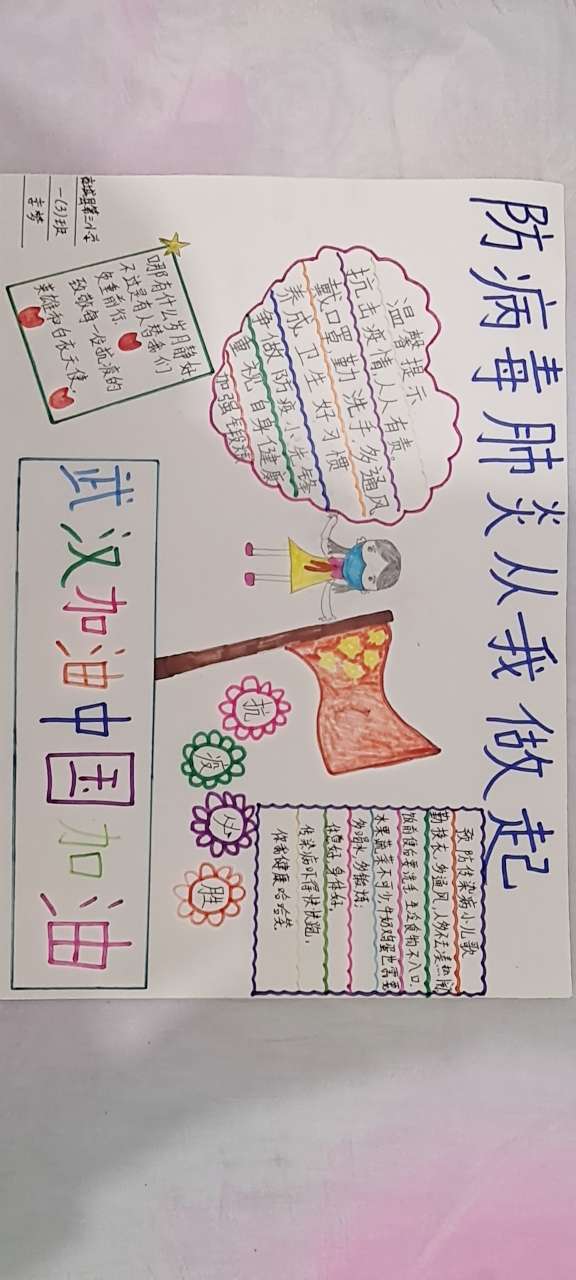 防病毒肺炎从我做起
温馨提示
抗击疫情人人有责。
戴口罩,勤洗手,多通风
养成卫生好习惯
争做防疫小先锋
重视自身健康
加强锻炼
哪有什么岁月静好
不过是有人替我们
负重前行.
致敬每一位抗疫的
英雄和白衣天使.
第三小学
一(3)班
抗
疫
必
胜
预防传染病小儿歌
多通风,人多不去凑热闹
饭前便后要洗手,生冷食物不入口.
水果蔬菜不可少,牛奶鸡蛋也需要
多喝水,多锻炼;
身体好.
传染病吓得快快跑,
你我健康哈哈笑.
武汉加油中国加油